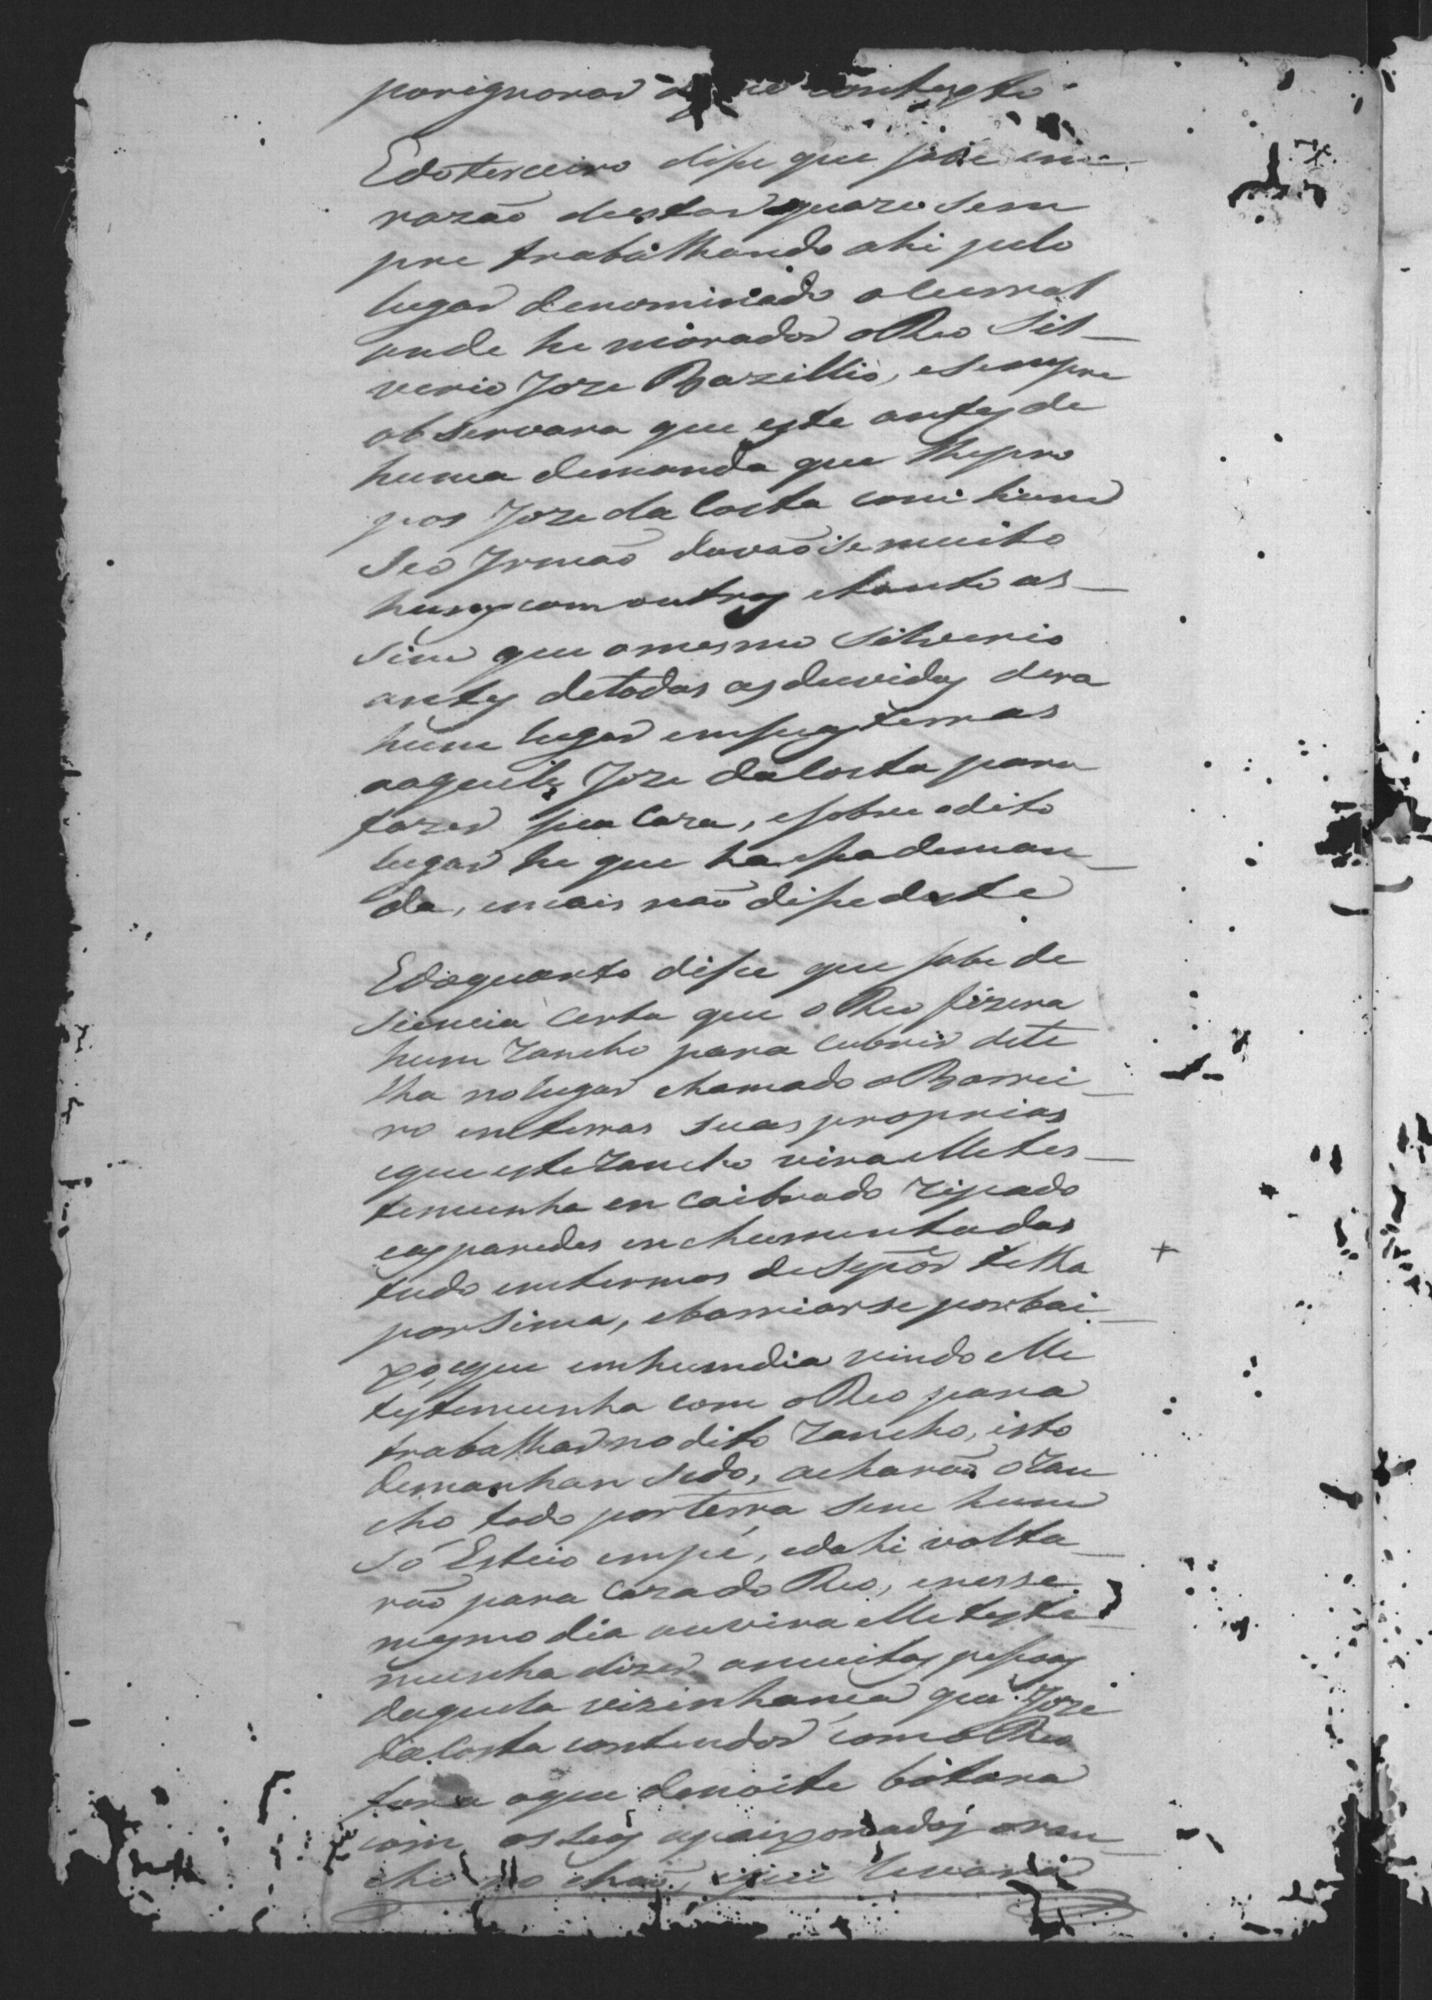 por ignorar o seo contexto
E do terceiro dise que sabe em
razão de estar quaze sem
pre trabalhando ahi pelo
lugar denominado o Curral
onde he morador o Reo Sil_
verio Joze Bazillio, e sempre
observara que este antes de
huma demanda que lhe pro
pos Joze da Costa com hum
seo Irmão davão se muito
huns com outros e tanto as_
sim que o mesmo Silverio
antes de todas as duvidas dera
hum lugar em suas terras
aaquele Joze da Costa para
fazer sua Caza, e sobre o dito
lugar he que ha essa deman_
da, e mais não dise deste
E do quarto dise que sabe de
siencia certa que o Reo fizera
hum Rancho para cubrir de te
lha no lugar chamado o Barrei_
ro em terras suas proprias
e que este Rancho vira elle tes_
temunha encaibrado ripado
e as paredes enchumentadas
tudo em termos de se pôr telha
por sima, e barriarse por bai_
xo, e que em hum dia vindo elle
testemunha com o Reo para
trabalhar no dito Rancho, isto
demanhan sedo, acharão o Ran
cho todo por terra sem hum
só Esteio em pé, e dahi volta_
rão para Caza do Reo, e nesse
mesmo dia ouvira elle teste_
munha dizer a muitas pessoas
daquela vizinhança que Joze
da Costa contendor com o Reo
fora o que denoite botara
com os seus apaixonados o ran_
cho no chão, que levara